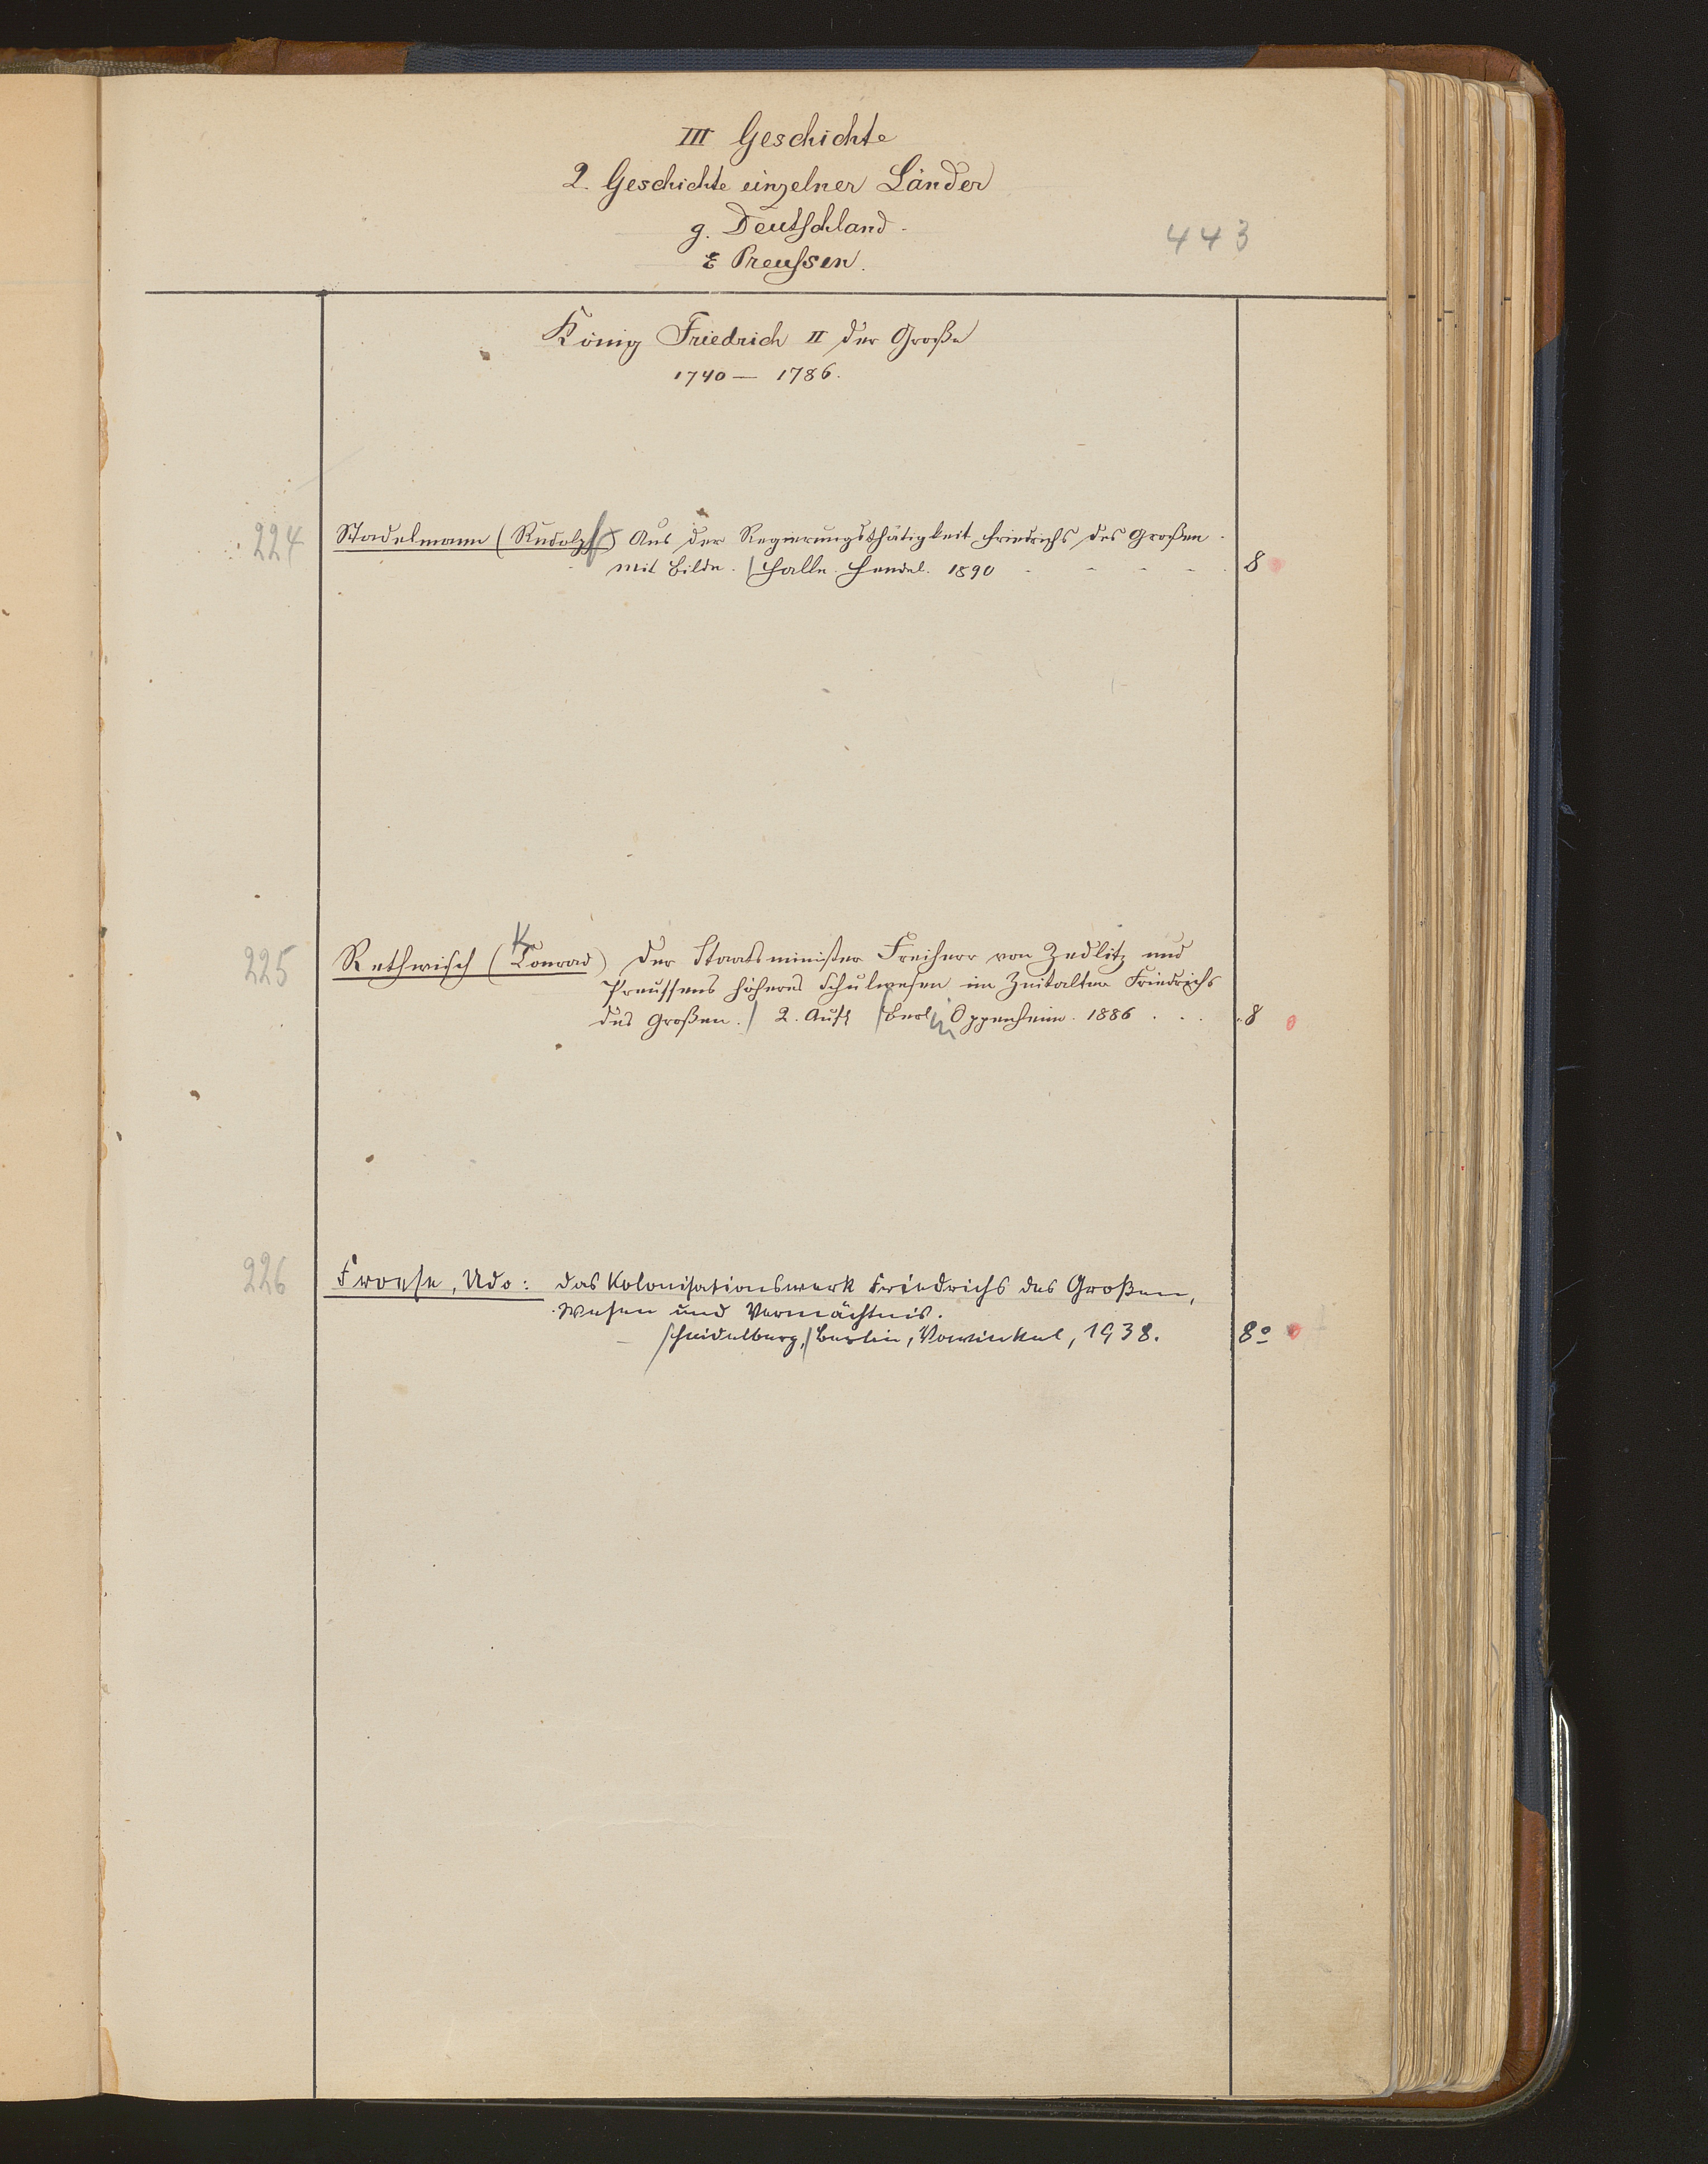 III Geschichte
2. Geschichte einzelner Länder
g. Deutschland.
ε Preussen.
443
König Friedrich II der Große
1740 — 1786.
224 Stadelmann (Rudolph) Aus der Regierungsthätigkeit Friedrichs des Großen.
Mit Bildn. Halle. Hendel. 1890 8
225 Rethwisch (Conrad) Der Staatsminister Freiherr von Zedlitz und
K
Preussens höheres Schulwesen im Zeitalter Friedrichs
des Großen. 2. Aufl Berlin Oppenheim. 1886 . . . 8
226 Froese, Udo: Das Kolonisationswerk Friedrichs des Großen,
Wesen und Vermächtnis.
Heidelberg, Berlin, Vowinkel, 1938. 8°